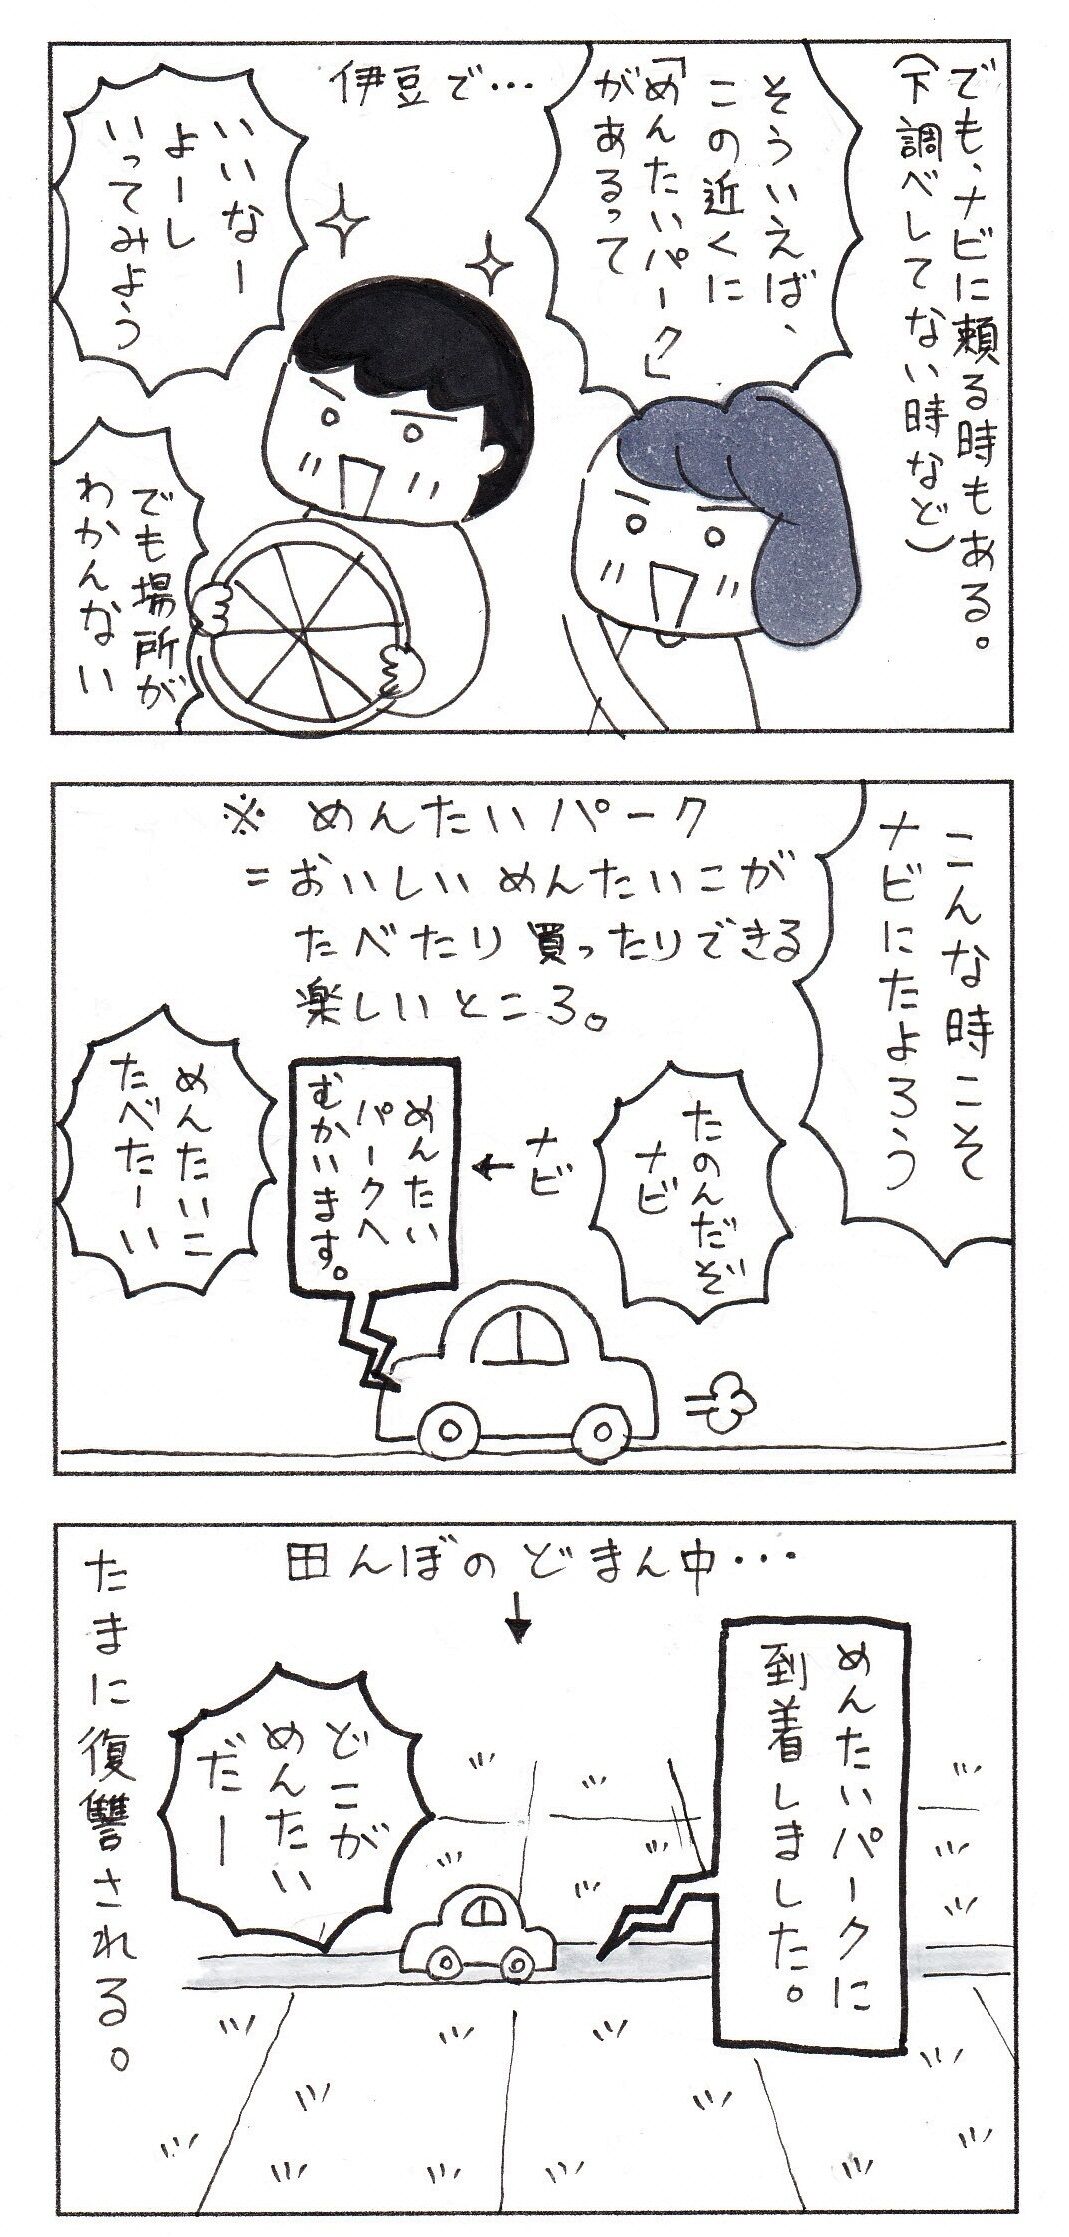 でも、ナビに頼る時もある。
(下調べしてない時など)
そういえば、
この近くに
「めんたいパーク」
があるって
伊豆で…
いいなー
よーし
いってみよう
でも場所が
わかんない
こんな時こそ
ナビにたよろう
※ めんたいパーク
=おいしいめんたいこが
たべたり買ったりできる
楽しいところ。
たのんだぞ
ナビ
ナビ
めんたい
パークへ
むかいます。
めんたいこ
たべたーい
田んぼのどまん中…
めんたいパークに
到着しました。
どこが
めんたい
だー
たまに復讐される。